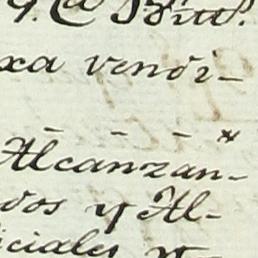 xa vendi-
Alcanzan-
dos y Al-
iciales y